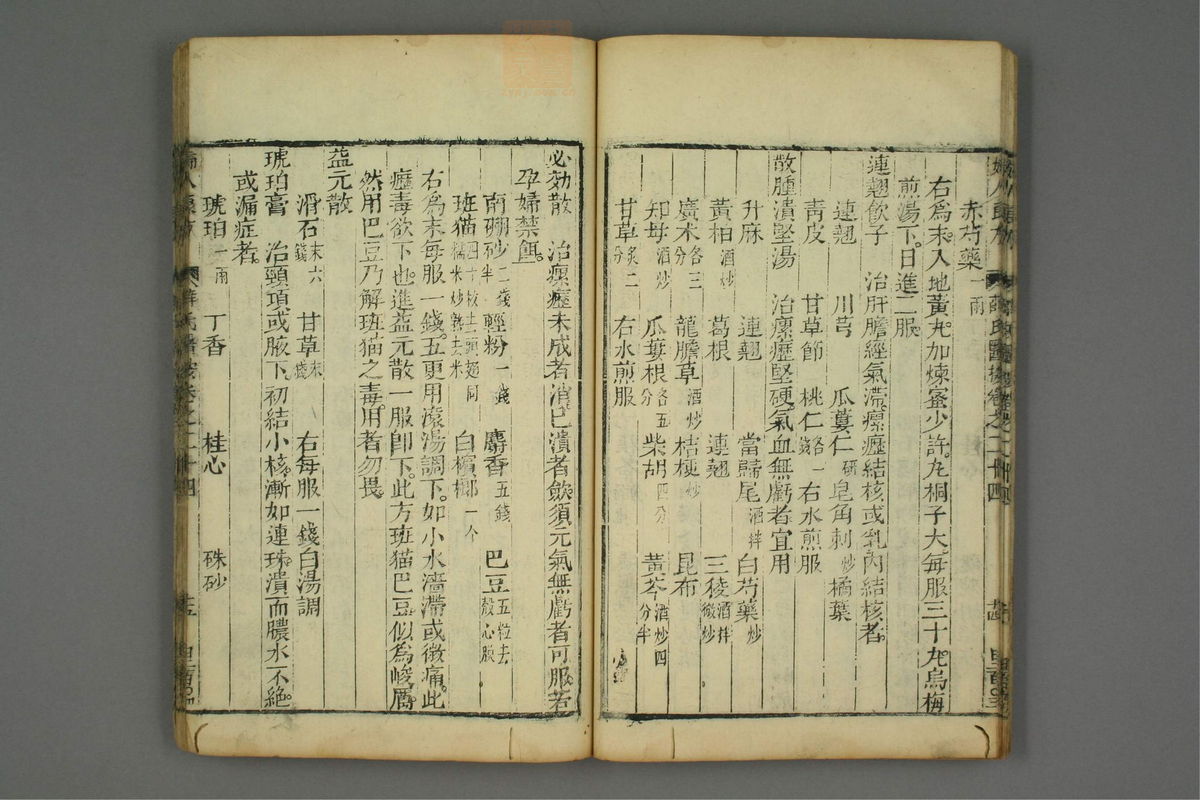 赤芍藥一兩
右為末入地黃丸加煉蜜少許丸桐子大每服三十丸烏梅
煎湯下日進二服
連翹飲子　治肝膽經氣滯瘰癧結核或乳內結核者
連翹　川芎　瓜蔞仁研　皂角刺炒　橘葉
青皮　甘草節　桃仁各一錢　右水煎服
散腫潰堅湯　治瘰癧堅硬氣血無虧者宜用
升麻　連翹　當歸尾酒拌　白芍藥炒
黃柏酒炒　葛根　連翹　三稜酒拌微炒
廣朮各三分　龍膽草酒炒　桔梗炒　昆布
知母酒炒　瓜蔞根各五分　柴胡四分　黃芩酒炒四分半
甘草炙二分　右水煎服
必効散　治瘰癧未成者消已潰者歛須元氣無虧者可服若
孕婦禁餌
南硼砂二錢半　輕粉一錢　麝香五錢　巴豆五粒去殼心膜
班猫四十枚去頭翅同糯米炒熟去米　白檳榔一个
右為末每服一錢五更用滾湯調下如小水濇滯或微痛此
癧毒欲下也進益元散一服即下此方班猫巴豆似為峻厲
然用巴豆乃解班猫之毒用者勿畏
益元散
滑石末六錢　甘草末錢　右每服一錢白湯調
琥珀膏　治頸項或腋下初結小核漸如連珠潰而膿水不絕
或漏症者
琥珀一兩　丁香　桂心　硃砂